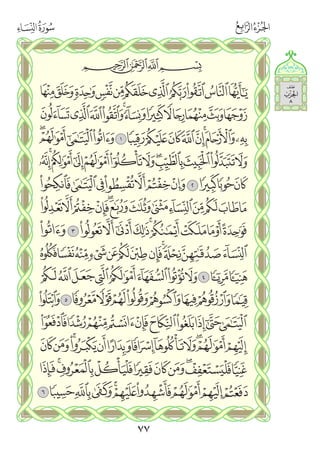 الجُزْءُ الرَّابِعُ
سُورَةُ النِّسَاءِ
الحِزْب
٨
بِسْمِ ٱللَّهِ ٱلرَّحْمَٰنِ ٱلرَّحِيمِ
يَٰٓأَيُّهَا ٱلنَّاسُ ٱتَّقُوا۟ رَبَّكُمُ ٱلَّذِى خَلَقَكُم مِّن نَّفْسٍ وَٰحِدَةٍ وَخَلَقَ مِنْهَا
زَوْجَهَا وَبَثَّ مِنْهُمَا رِجَالًا كَثِيرًا وَنِسَآءً ۚ وَٱتَّقُوا۟ ٱللَّهَ ٱلَّذِى تَسَآءَلُونَ
بِهِۦ وَٱلْأَرْحَامَ ۚ إِنَّ ٱللَّهَ كَانَ عَلَيْكُمْ رَقِيبًا ١ وَءَاتُوا۟ ٱلْيَتَٰمَىٰٓ أَمْوَٰلَهُمْ ۖ
وَلَا تَتَبَدَّلُوا۟ ٱلْخَبِيثَ بِٱلطَّيِّبِ ۖ وَلَا تَأْكُلُوٓا۟ أَمْوَٰلَهُمْ إِلَىٰٓ أَمْوَٰلِكُمْ ۚ إِنَّهُۥ
كَانَ حُوبًا كَبِيرًا ٢ وَإِنْ خِفْتُمْ أَلَّا تُقْسِطُوا۟ فِى ٱلْيَتَٰمَىٰ فَٱنكِحُوا۟
مَا طَابَ لَكُم مِّنَ ٱلنِّسَآءِ مَثْنَىٰ وَثُلَٰثَ وَرُبَٰعَ ۖ فَإِنْ خِفْتُمْ أَلَّا تَعْدِلُوا۟
فَوَٰحِدَةً أَوْ مَا مَلَكَتْ أَيْمَٰنُكُمْ ۚ ذَٰلِكَ أَدْنَىٰٓ أَلَّا تَعُولُوا۟ ٣ وَءَاتُوا۟
ٱلنِّسَآءَ صَدُقَٰتِهِنَّ نِحْلَةً ۚ فَإِن طِبْنَ لَكُمْ عَن شَىْءٍ مِّنْهُ نَفْسًا فَكُلُوهُ
هَنِيٓـًٔا مَّرِيٓـًٔا ٤ وَلَا تُؤْتُوا۟ ٱلسُّفَهَآءَ أَمْوَٰلَكُمُ ٱلَّتِى جَعَلَ ٱللَّهُ لَكُمْ
قِيَٰمًا وَٱرْزُقُوهُمْ فِيهَا وَٱكْسُوهُمْ وَقُولُوا۟ لَهُمْ قَوْلًا مَّعْرُوفًا ٥ وَٱبْتَلُوا۟
ٱلْيَتَٰمَىٰ حَتَّىٰٓ إِذَا بَلَغُوا۟ ٱلنِّكَاحَ فَإِنْ ءَانَسْتُم مِّنْهُمْ رُشْدًا فَٱدْفَعُوٓا۟
إِلَيْهِمْ أَمْوَٰلَهُمْ ۖ وَلَا تَأْكُلُوهَآ إِسْرَافًا وَبِدَارًا أَن يَكْبَرُوا۟ ۚ وَمَن كَانَ
غَنِيًّا فَلْيَسْتَعْفِفْ ۖ وَمَن كَانَ فَقِيرًا فَلْيَأْكُلْ بِٱلْمَعْرُوفِ ۚ فَإِذَا
دَفَعْتُمْ إِلَيْهِمْ أَمْوَٰلَهُمْ فَأَشْهِدُوا۟ عَلَيْهِمْ ۚ وَكَفَىٰ بِٱللَّهِ حَسِيبًا ٦
٧٧